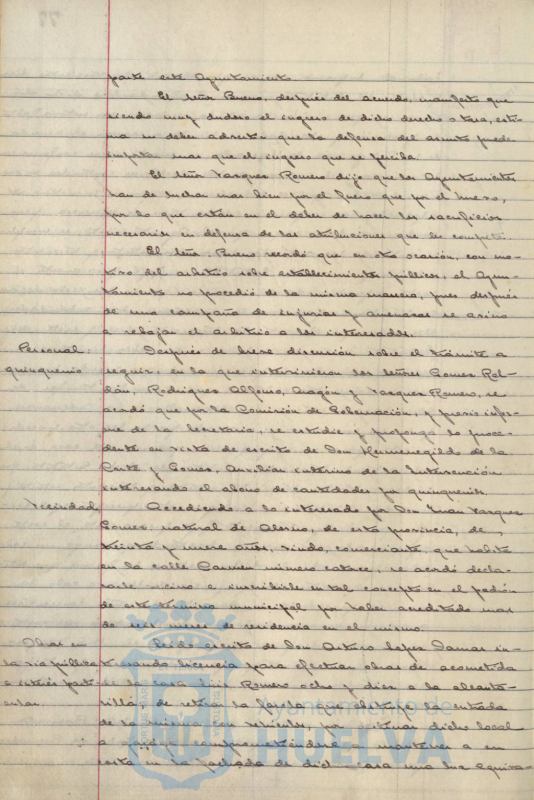 parte este Ayuntamiento.
El señor Bueno, después del acuerdo, manifestó que
siendo muy dudoso el ingreso de dicho derecho o tasa, estima
no deber advertir que la defensa del asunto puede
importar mas que el ingreso que se perciba.
El señor Vazquez Romero dijo que los Ayuntamientos
han de luchar mas bien por el fuero que por el huevo,
por lo que están en el deber de hacer los sacrificios
necesarios en defensa de las atribuciones que les competen.
El señor Bueno recordó que en otra ocasión, con mo-
tivo del arbitrio sobre establecimientos públicos, el Ayun-
tamiento no procedió de la misma manera, pues después
de una campaña de injurias y amenazas se avino
a rebajar el arbitrio a los interesados.
Personal. Después de breve discusión sobre el trámite a
quinquenio seguir, en la que intervinieron los señores Gomez Rol-
dán, Rodriguez Alfonso, Aragón y Vazquez Romero, se
acordó que por la Comisión de Gobernación, y previo infor-
me de la Secretaria, se estudie y proponga lo proce-
dente en vista de escrito de Don Hermenegildo de la
Corte y Gomez, Auxiliar interino de la Intervención
interesando el abono de cantidades por quinquenios.
Vecindad, Accediendo a lo interesado por Don Juan Vazquez
Gomez, natural de Alosno, de esta provincia, de
treinta y nueve años, viudo, comerciante, que habita
en la calle Carmen número catorce, se acordó decla-
rarle vecino e inscribirle en tal concepto en el padrón
de este término municipal por haber acreditado mas
de seis meses de residencia en el mismo.
Obras en Leido escrito de Don Arturo Lopez Damas in-
la via pública teresando licencia para efectuar obras de acometida
e interés parti- de la casa Luis Romero ocho y diez a la alcanta-
cular. rilla, y de retirar la farola que obstruye la entrada
de la misma con vehiculos, por destinar dicho local
a garage, comprometiéndose a mantener a su
costa en la fachada de dicha casa una luz equiva-
Ayuntamiento de
HUELVA